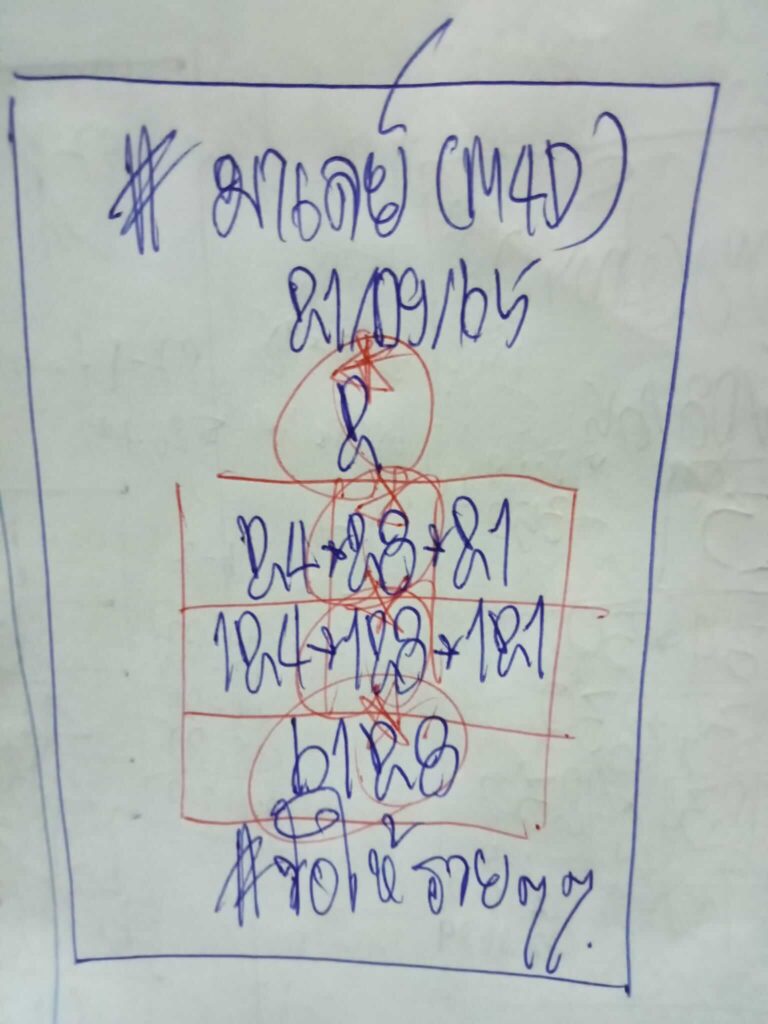 # มาเลย์ (M4D)
21/09/65
2
24*28*21
124*128*121
6128
#ซื้อให้รวยๆๆ